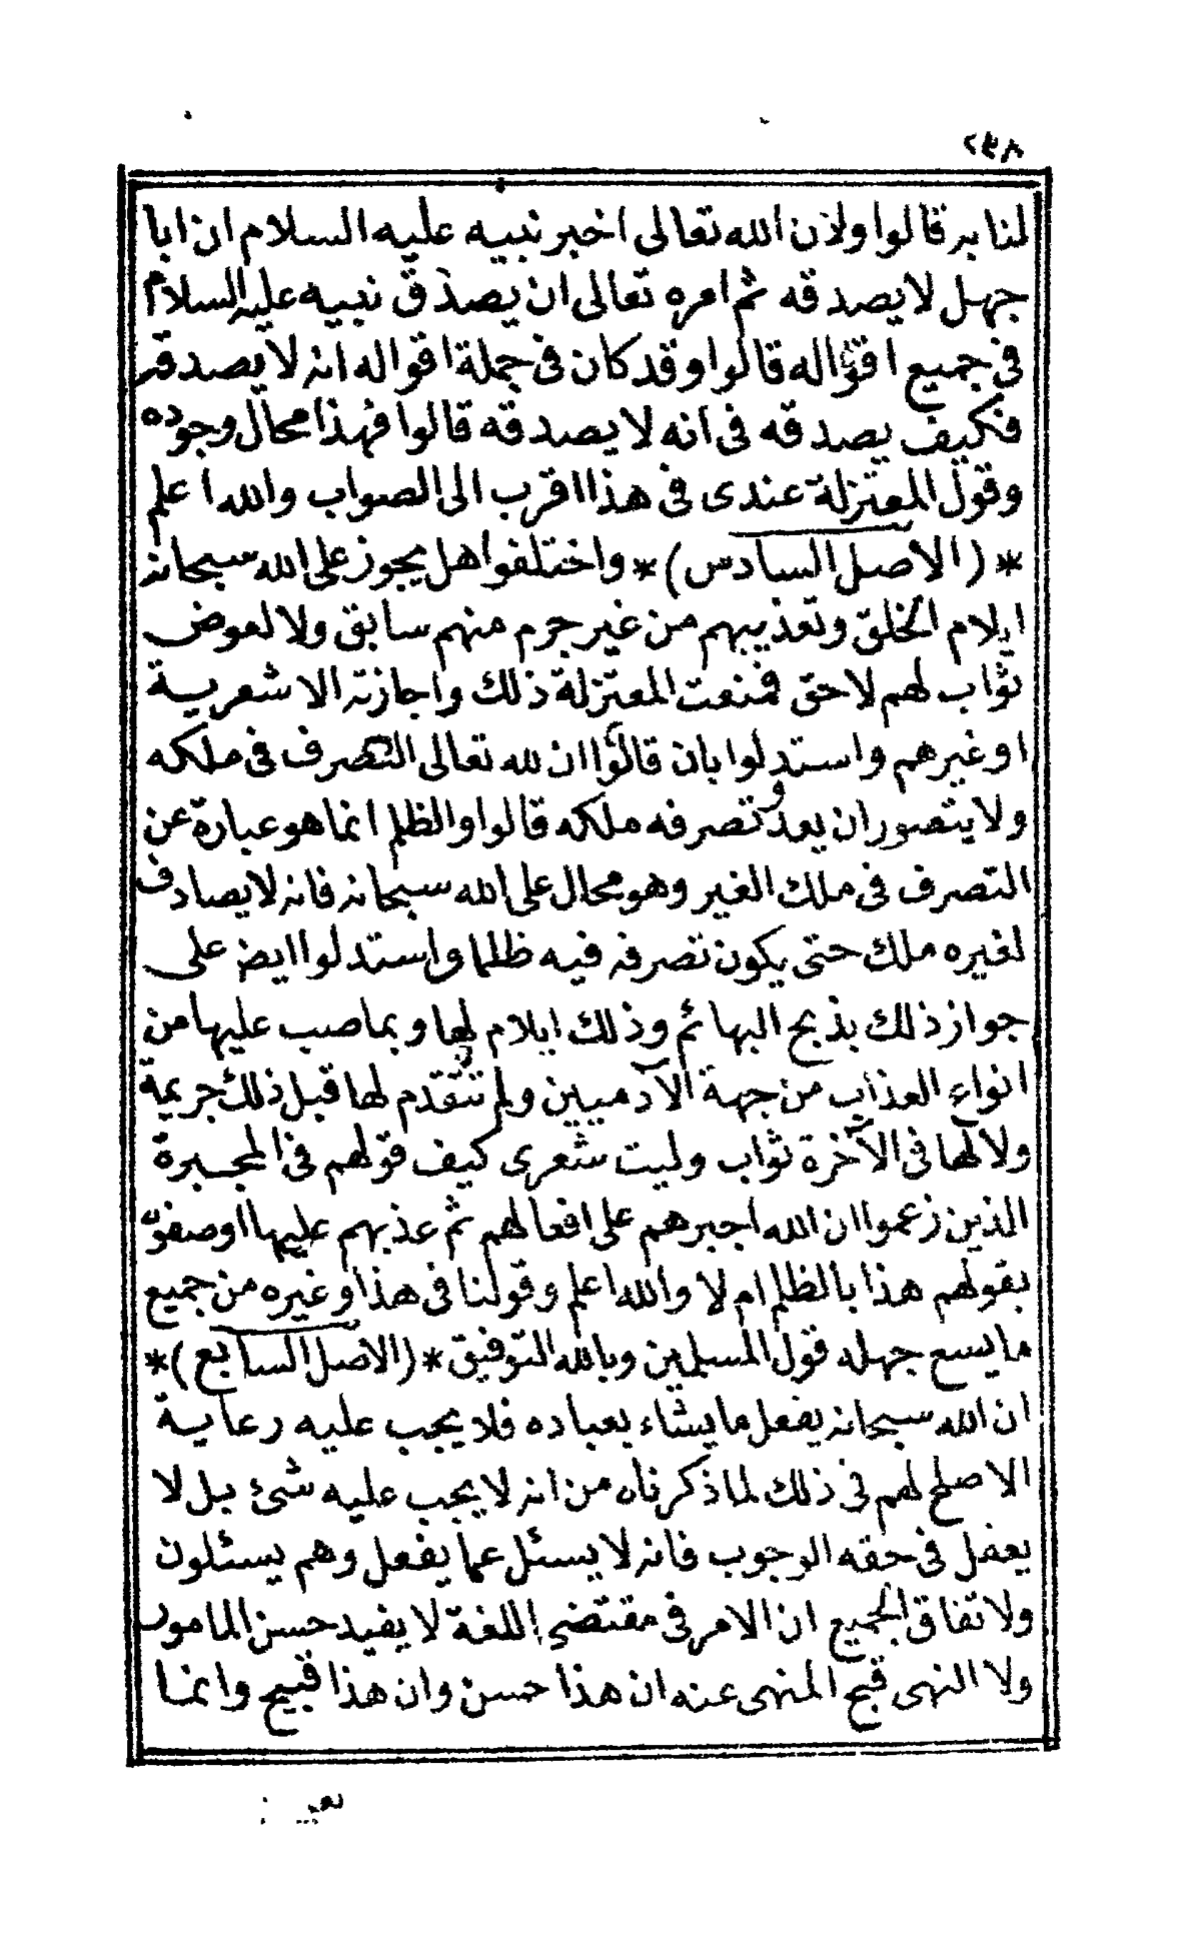 لنا به قالوا ولان الله تعالى اخبر نبيه عليه السلام ان ابا
جهل لا يصدقه ثم امره تعالى ان يصدق نبيه عليه السلام
فى جميع اقواله قالوا وقد كان فى جملة اقواله انه لا يصدقه
فكيف يصدقه فى انه لا يصدقه قالوا فهذا محال وجوده
وقول المعتزلة عندى فى هذا اقرب الى الصواب والله اعلم
* (الاصل السادس) * واختلفوا هل يجوز على الله سبحانه
ايلام الخلق وتعذيبهم من غير جرم منهم سابق ولا لعوض
ثواب لهم لاحق فمنعت المعتزلة ذلك واجازته الاشعرية
او غيرهم واستدلوا بان قالوا ان لله تعالى التصرف فى ملكه
ولا يتصور ان يعدو تصرفه ملكه قالوا والظلم انما هو عبارة عن
التصرف فى ملك الغير وهو محال على الله سبحانه فانه لا يصادف
لغيره ملك حتى يكون تصرفه فيه ظلما واستدلوا ايض على
جواز ذلك بذبح البهائم وذلك ايلام لها وبما صب عليها من
انواء العذاب من جهة الآدميين ولم تتقدم لها قبل ذلك جريمة
ولا لها فى الآخرة ثواب وليت شعرى كيف قولهم فى المجبرة
الذين زعموا ان الله اجبرهم على افعالهم ثم عذبهم عليها اوصفوه
بقولهم هذا بالظلم ام لا والله اعلم وقولنا فى هذا وغيره من جميع
ما يسع جهله قول المسلمين وبالله التوفيق * (الاصل السابع) *
ان الله سبحانه يفعل ما يشاء بعباده فلا يجب عليه رعاية
الاصلح لهم فى ذلك لما ذكرناه من انه لا يجب عليه شئ بل لا
يعقل فى حقه الوجوب فانه لا يسئل عما يفعل وهم يسئلون
ولاتفاق الجميع ان الامر فى مقتضى اللغة لا يفيد حسن المامور
ولا النهى قبح المنهى عنه ان هذا حسن وان هذا قبيح وانما